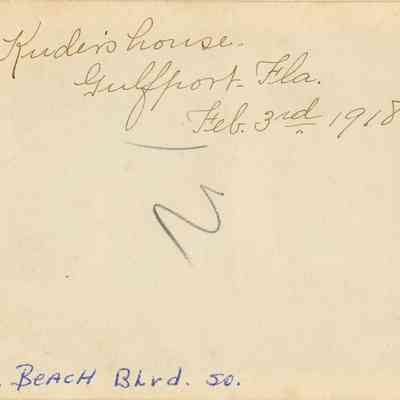 Kuder's house.
Gulfport- Fla.
Feb. 3rd 1918
N
. BEACH Blvd. so.